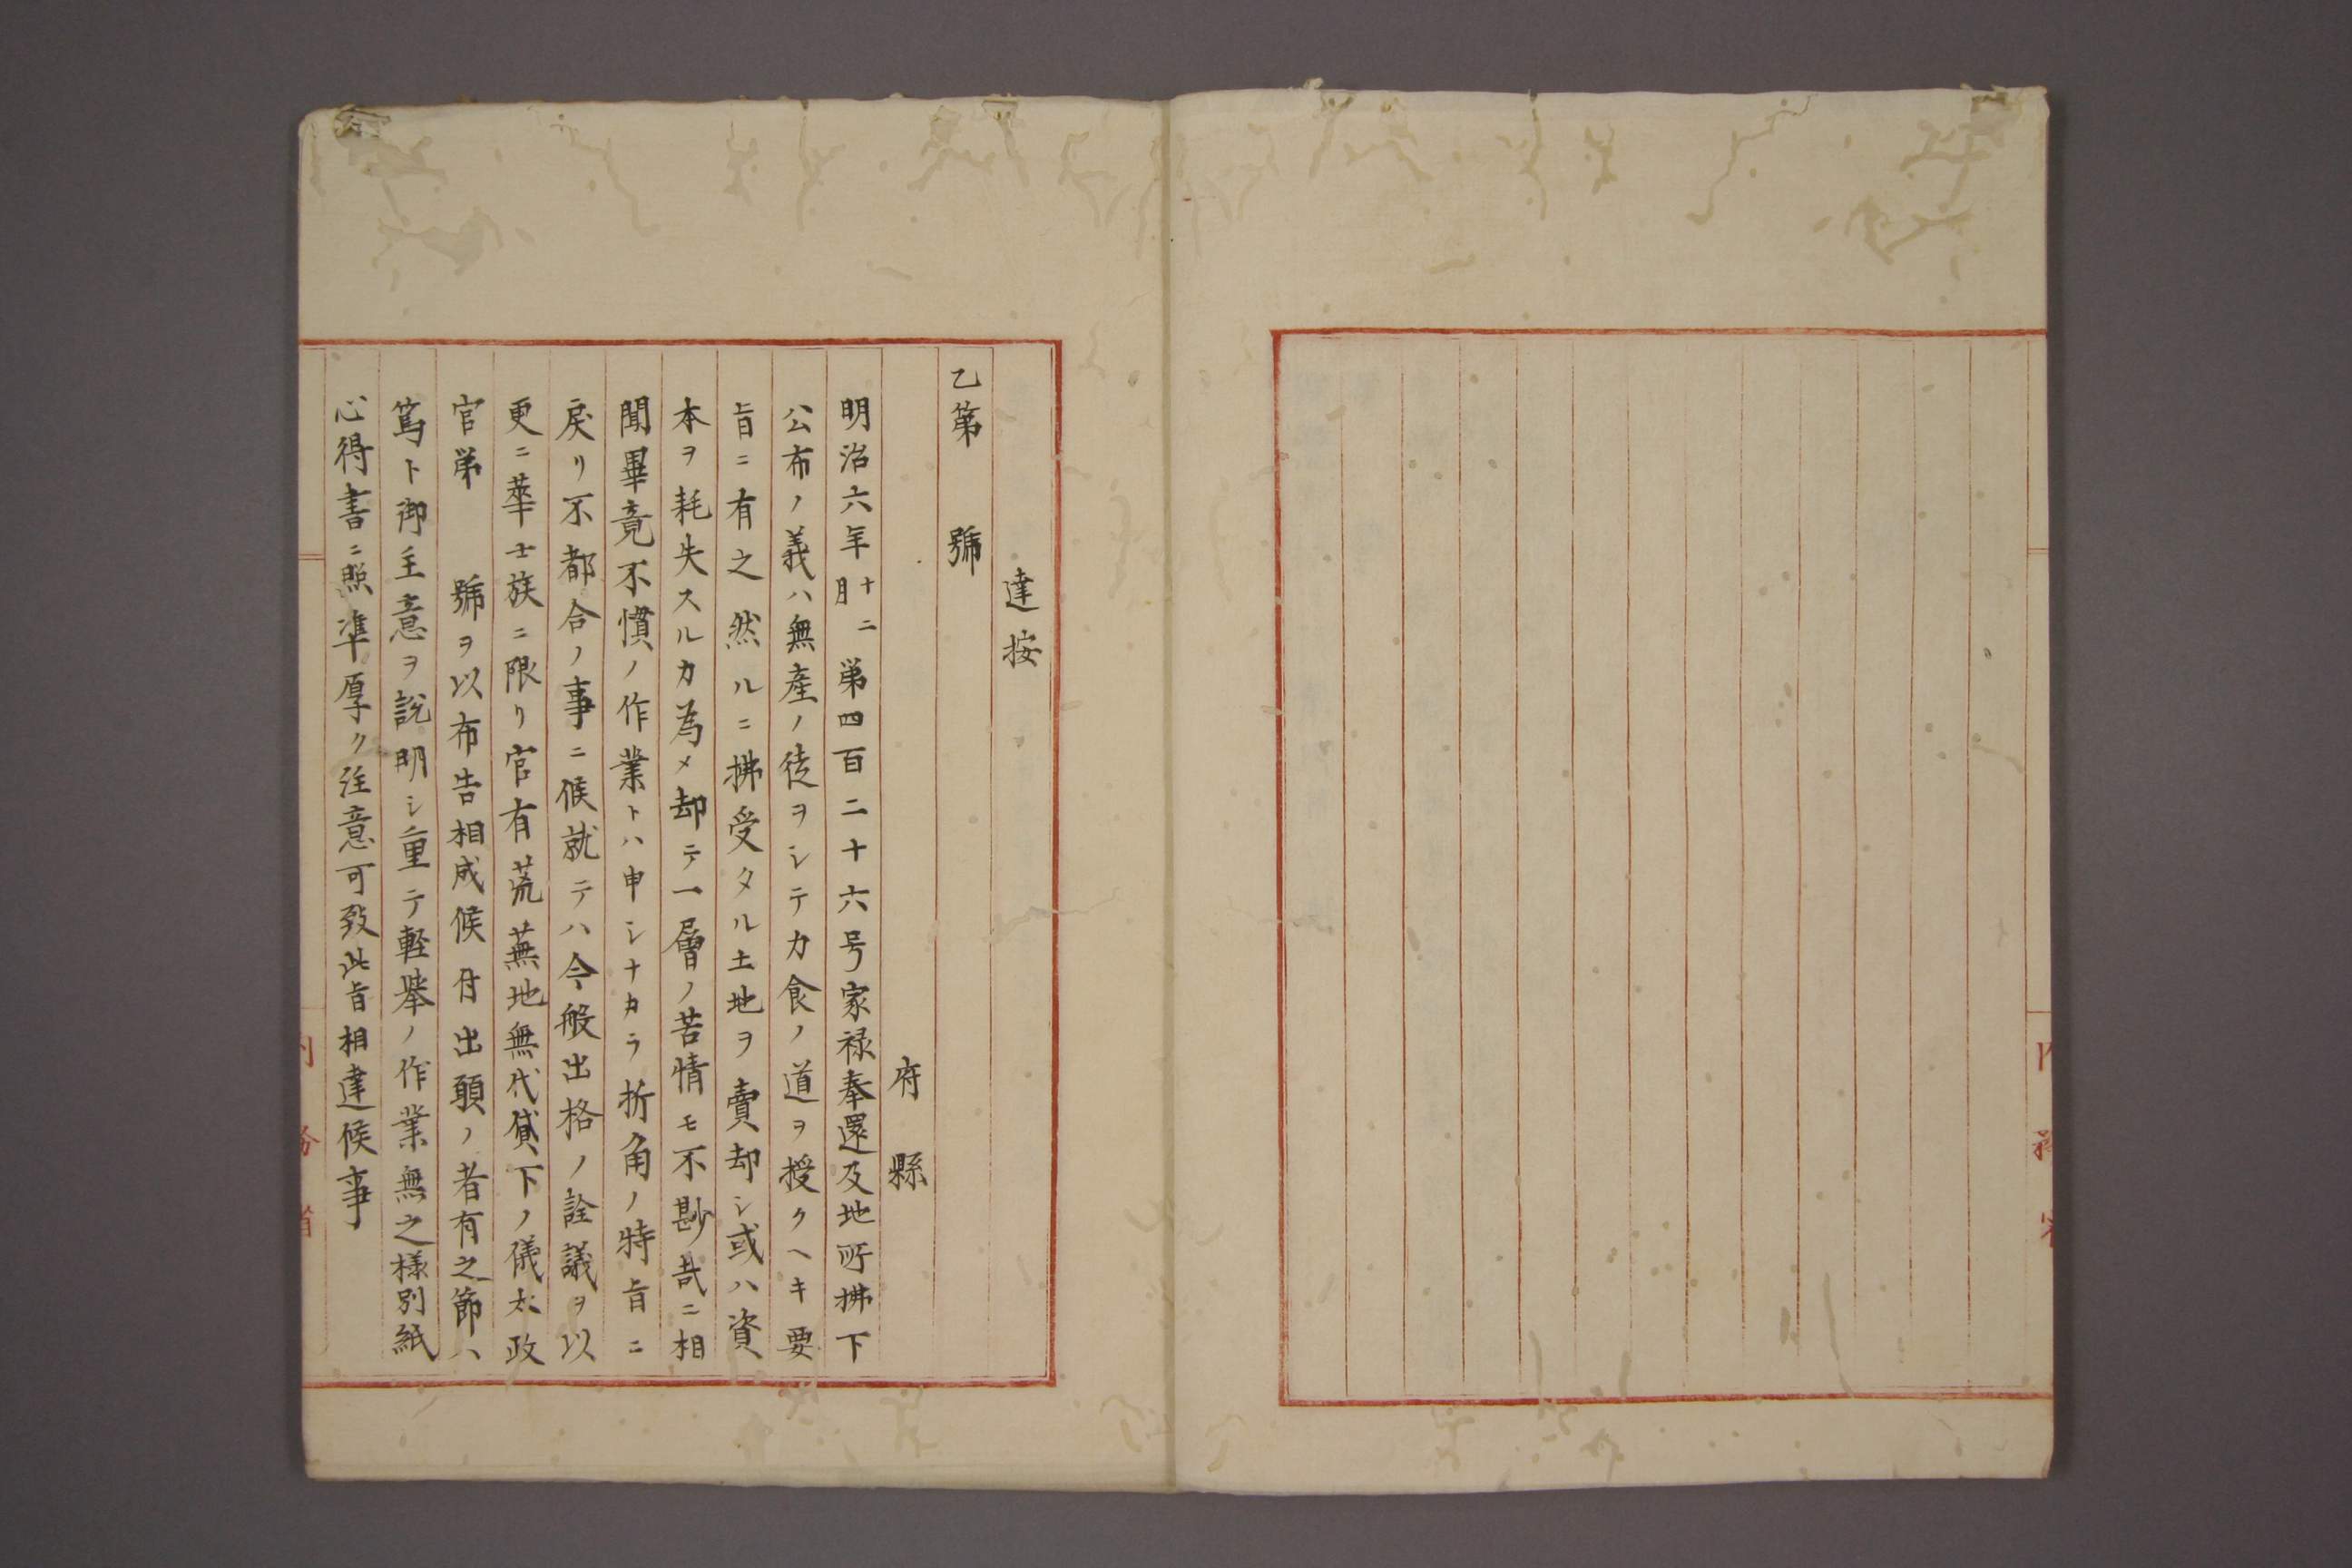 達按
乙第　　號
府縣
明治六年十二月第四百二十六号家禄奉還及地所拂下
公布ノ義ハ無産ノ徒ヲシテカ食ノ道ヲ授クヘキ要
旨ニ有之然ルニ拂受タル土地ヲ賣却シ或ハ資
本ヲ耗失スルカ為メ却テ一層ノ苦情モ不尠哉ニ相
聞畢竟不慣ノ作業トハ申シナカラ折角ノ特旨ニ
戻リ不都合ノ事ニ候就テハ今般出格ノ詮議ヲ以
更ニ華士族ニ限リ官有荒蕪地無代貸下ノ儀太政
官第　　號ヲ以布告相成候付出願ノ者有之節ハ
篤ト御主意ヲ説明シ重テ軽挙ノ作業無之様別紙
心得書ニ照準厚ク注意可致此旨相達候事
内務省
内務省